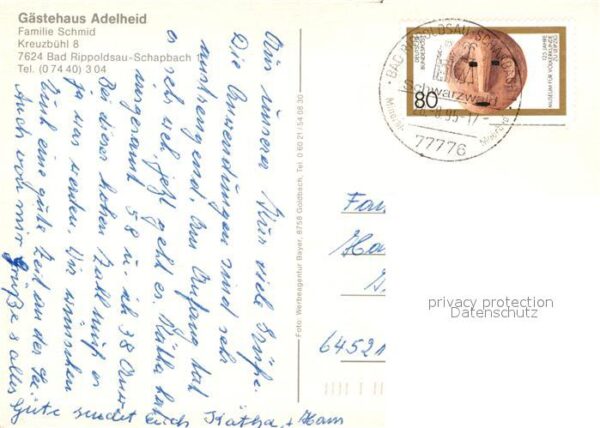 Gästehaus Adelheid
Familie Schmid
Kreuzbühl 8
7624 Bad Rippoldsau-Schapbach
Tel. (0 74 40) 3 04
Aus unserer Kur viele Grüße.
Die Anwendungen sind sehr
anstrengend. Am Anfang hat
es sehr, jetzt geht es. Kätha hat
insgesamt 58 u. ich 38 Anw.
Bei dieser hohen Zahl muß es
ja was werden. Wir wünschen
Euch eine gute Zeit an der See
Auch von mir Grüße & alles
Gute sendet Euch Kätha + Ham
Foto: Werbeagentur Bayer, 8758 Goldbach, Tel. 0 60 21 / 54 08 30
DEUTSCHE BUNDESPOST
80
125 JAHRE
MUSEUM FÜR VÖLKERKUNDE
ZU LEIPZIG
BAD RIPPOLDSAU-SCHAPBACH
Schwarzwald
Mineral- Moorbad
77776
Fam
Ha
64521
privacy protection
Datenschutz